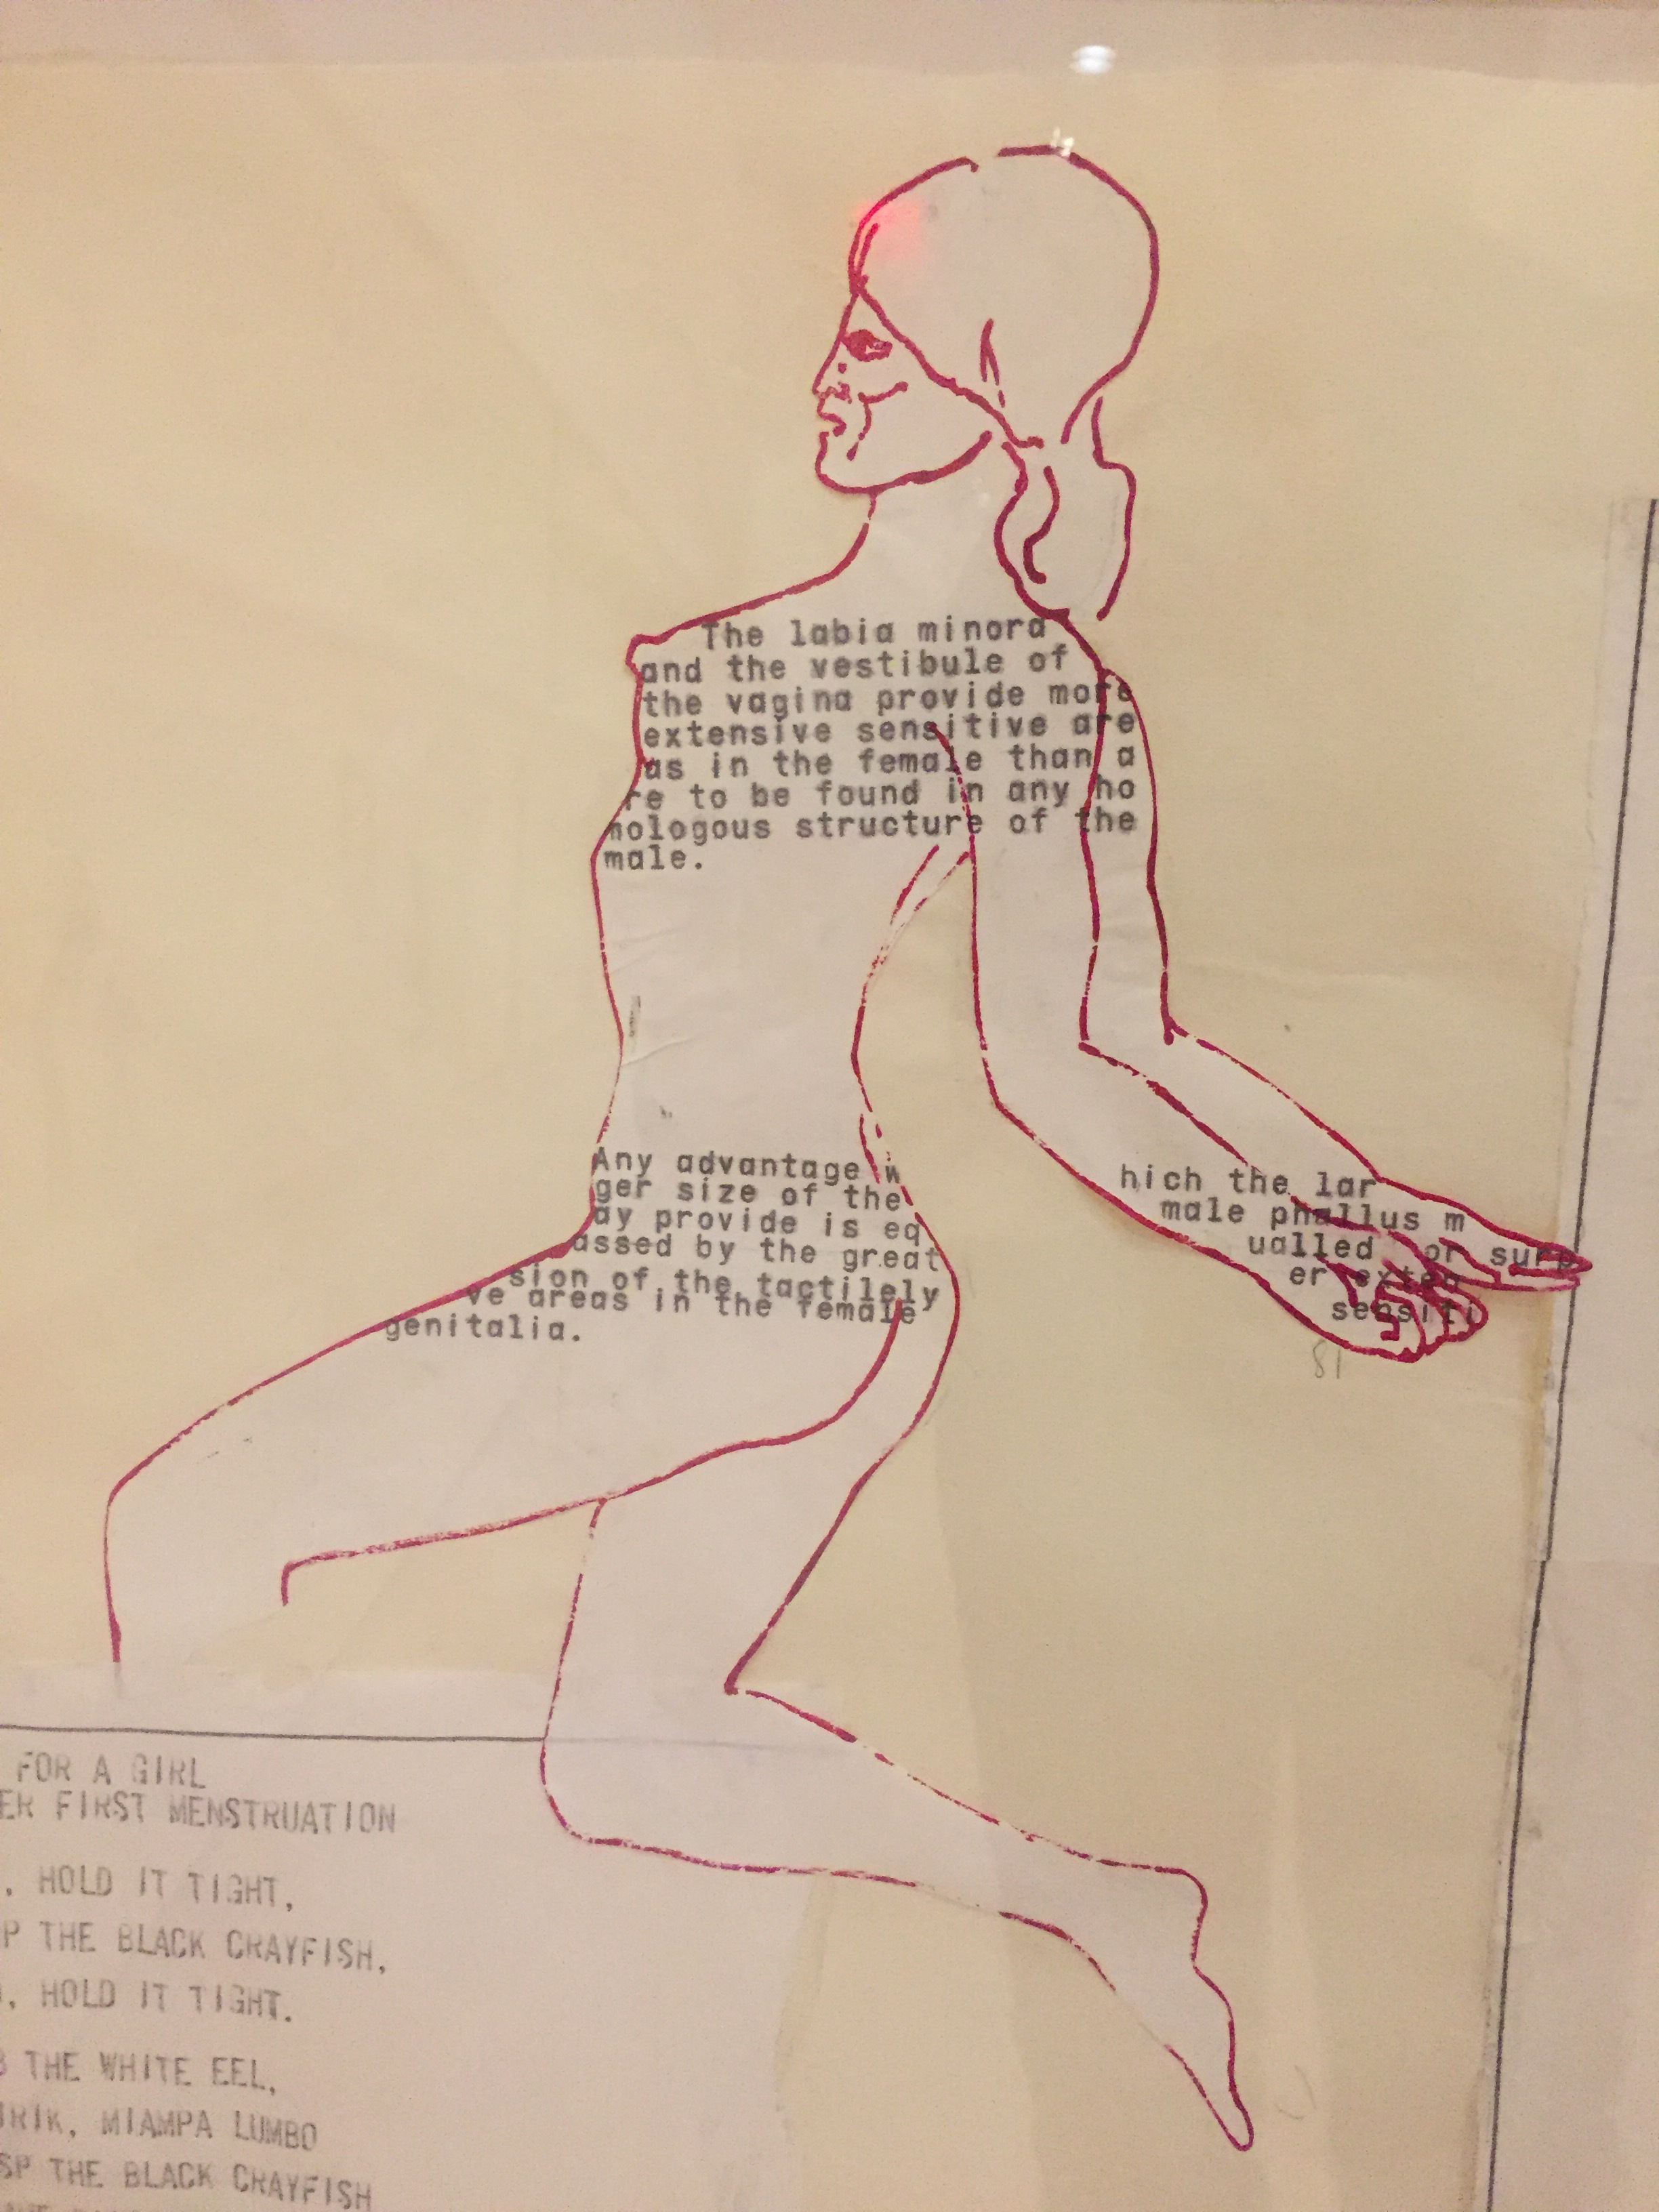 The labia minora
and the vestibule of
the vagina provide more
extensive sensitive are
as in the female than a
re to be found in any ho
mologous structure of the
male.
Any advantage w hich the lar
ger size of the male phallus m
ay provide is eq ualled or surp
assed by the great er exten
sion of the tactilely sensiti
ve areas in the female
genitalia.
81
FOR A GIRL
ER FIRST MENSTRUATION
, HOLD IT TIGHT,
P THE BLACK CRAYFISH,
, HOLD IT TIGHT.
THE WHITE EEL,
IRIK, MIAMPA LUMBO
SP THE BLACK CRAYFISH